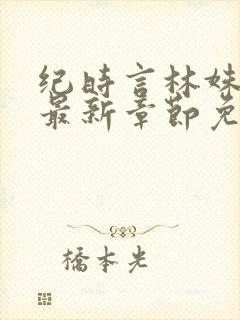 纪时言林妹
最新章节免
橋本光